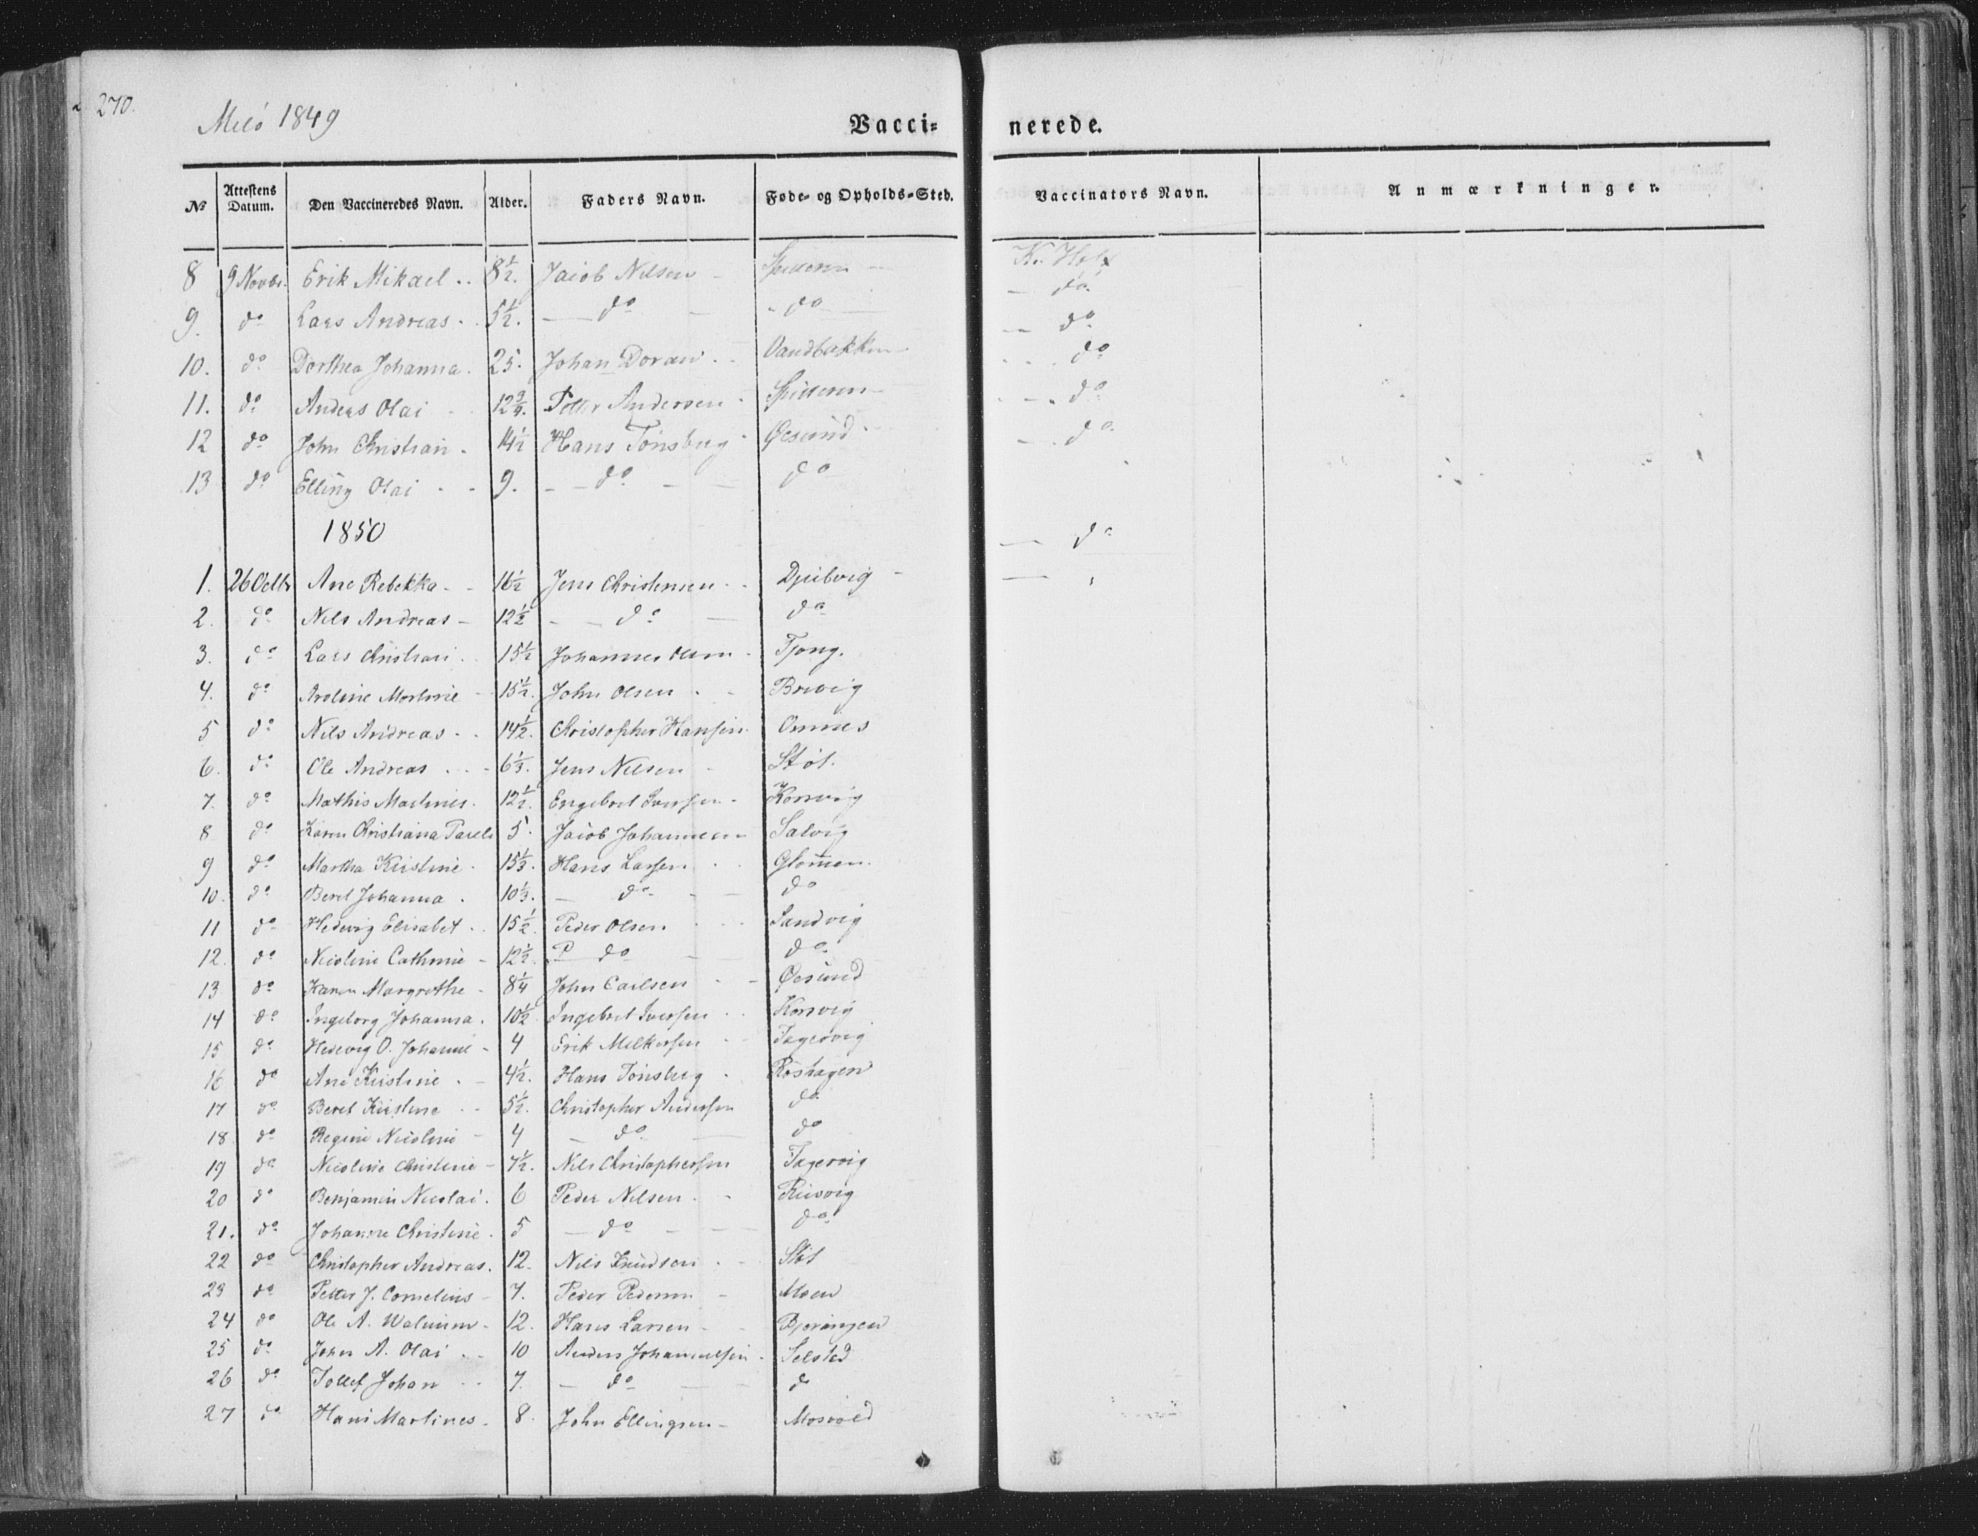 270.
Melö 1849
Vacci- nerede.
№ Attestens Datum. Den Vaccineredes Navn. Alder. Faders Navn. Føde- og Opholds-Sted. Vaccinators Navn. Anmærkninger.
8 9 Novbr. Erik Mikael 8½. Jacob Nilsen K. Holst
9. do Lars Andreas 5½. do do do
10. do Dorthea Johanna. 25. Johan Doran Vandbakken do
11. do Anders Olai 12¾. Petter Andersen do
12 do John Christian 14½ Hans Tönsberg Øesund do
13 do Elling Olai 9. do do do
1850 do
1. 26 Octbr Ane Rebekka 16½ Jens Christensen Djubvig
2. do Nils Andreas 12½ do do
3. do Lars Christian 15½ Johannes Olsen Tjong.
4. do Aroline Martine 15½. John Olsen Brevig
5 do Nils Andreas 14½. Christopher Hansen Onnes
6. do Ole Andreas 6⅓. Jens Nilsen Støt.
7. do Mathis Martines. 12½. Engebret Iversen Korsvig
8 do Karen Christiana Parel 5. Jacob Johannesen Salvig
9 do Martha Kristine 15⅓. Hans Larsen Glommen.
10. do Beret Johanna 10⅓. do do
11 do Hedevig Elisabet 15½. Peder Olsen Sandvig
12. do Nicoline Cathrine 12½. P do do
13 do Karen Margrethe 8¼ John Carlsen Øesund
14 do Ingeborg Johanna. 10½ Ingebret Iversen Korsvig
15 do Hedevig O. Johanne 4 Erik Melkersen Fagervig
16 do Ane Kirstine 4½. Hans Tönsberg Roshagen
17 do Beret Kirstine 5½. Christopher Andersen do
18 do Regine Nicoline 4 do do
19 do Nicoline Christine 7½. Nils Christophersen Fagervig
20 do Benjamin Nicolai. 6 Peder Nilsen
21. do Johanne Christine. 5 do do
22 do Christopher Andreas. 12. Nils Knudsen Støt
23 do Petter J. Cornelius 7. Peder Pedersen Moen
24 do Ole A. 12. Hans Larsen Bjerangen
25 do John A. Olai 10 Anders Johannessen Selsted
26 do Tollef Johan 7. do do
27 do Hans Martines 8. John Ellingsen Mosvold